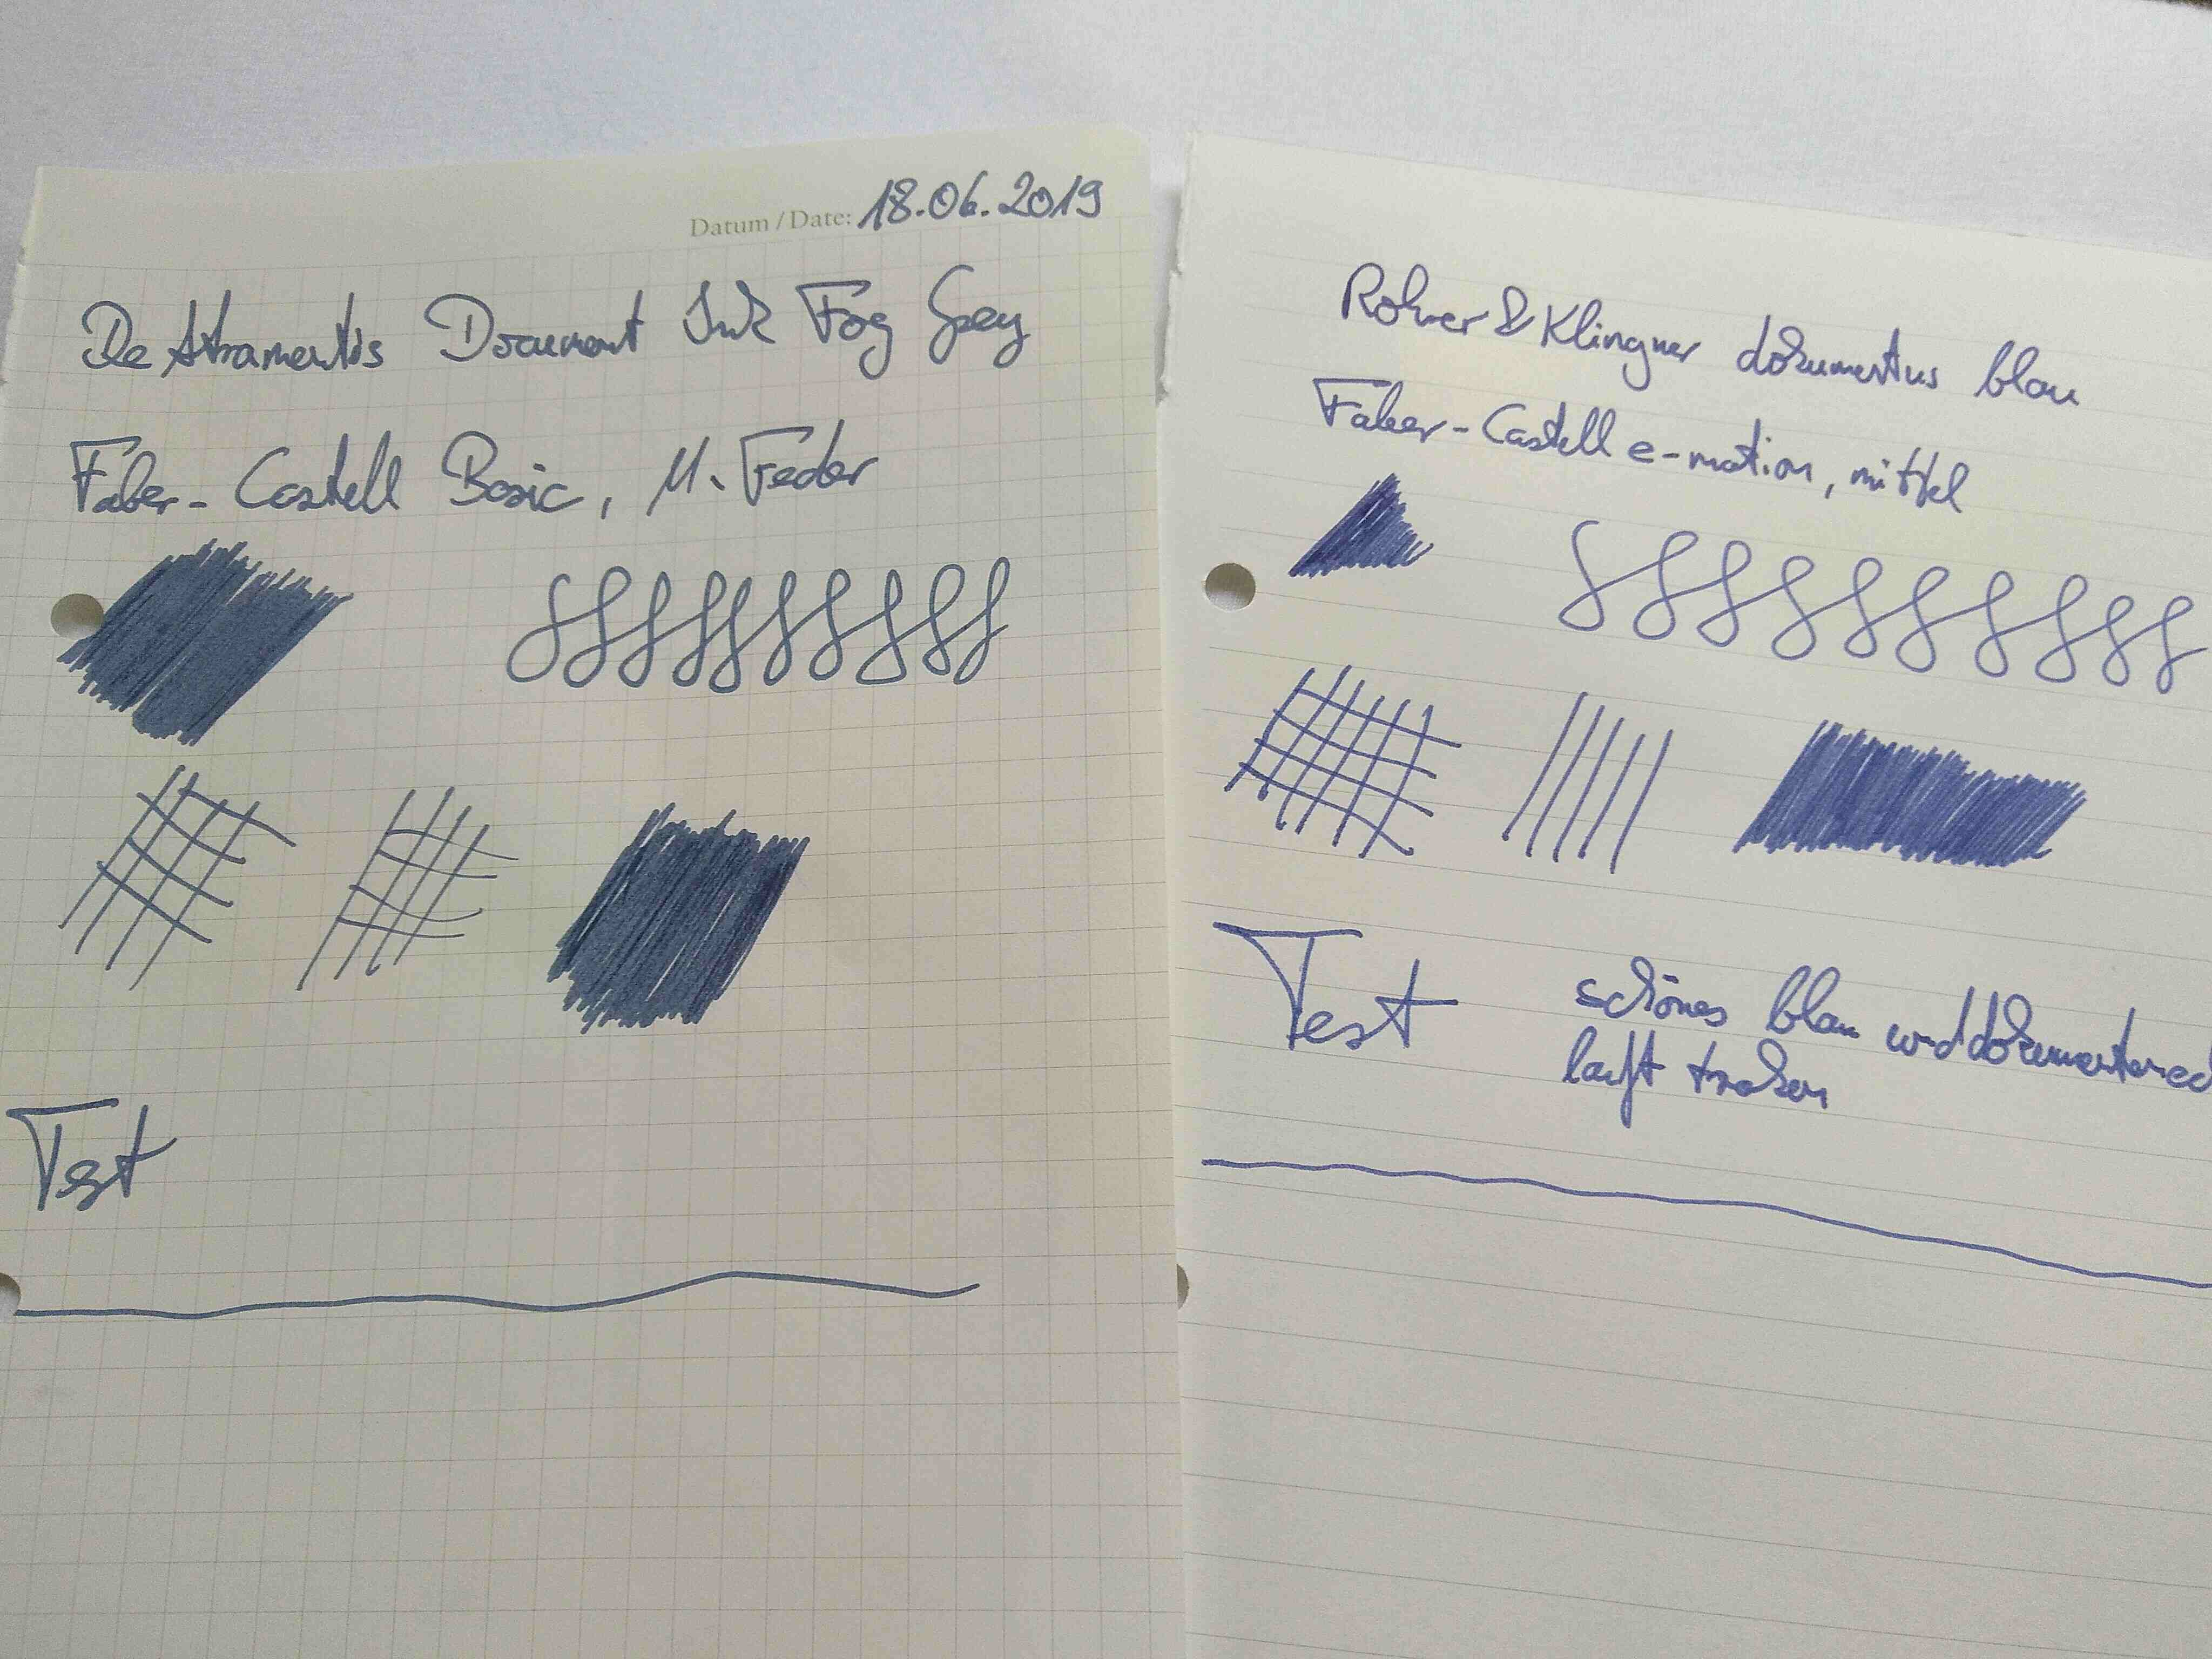 Datum / Date: 18.06.2019
De Atramentis Document Ink Fog Grey
Faber-Castell Basic, M. Feder
Test
Rohrer & Klingner dokumentus blau
Faber-Castell e-motion, mittel
Test
schönes blau und dokumentenec
lauft troken